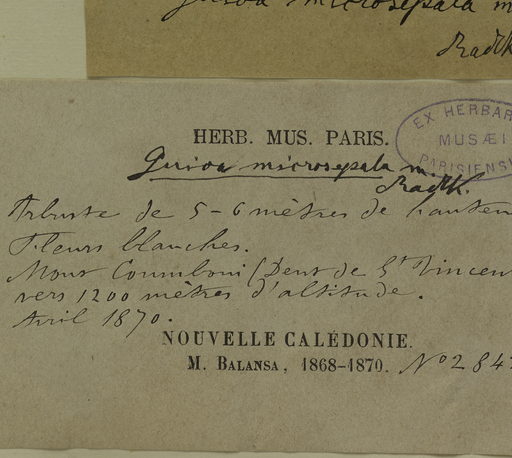 Guioa microsepala m
Radlk
HERB. MUS. PARIS.
EX HERBAR
MUSÆI
PARISIENSI
Guioa microsepala m.
Radlk.
Arbuste de 5-6 mètres de hauteu
Fleurs blanches.
Mont Coumboui (Dent de St Vincen
vers 1200 mètres d'altitude.
Avril 1870.
NOUVELLE CALÉDONIE.
M. BALANSA, 1868-1870. No 284